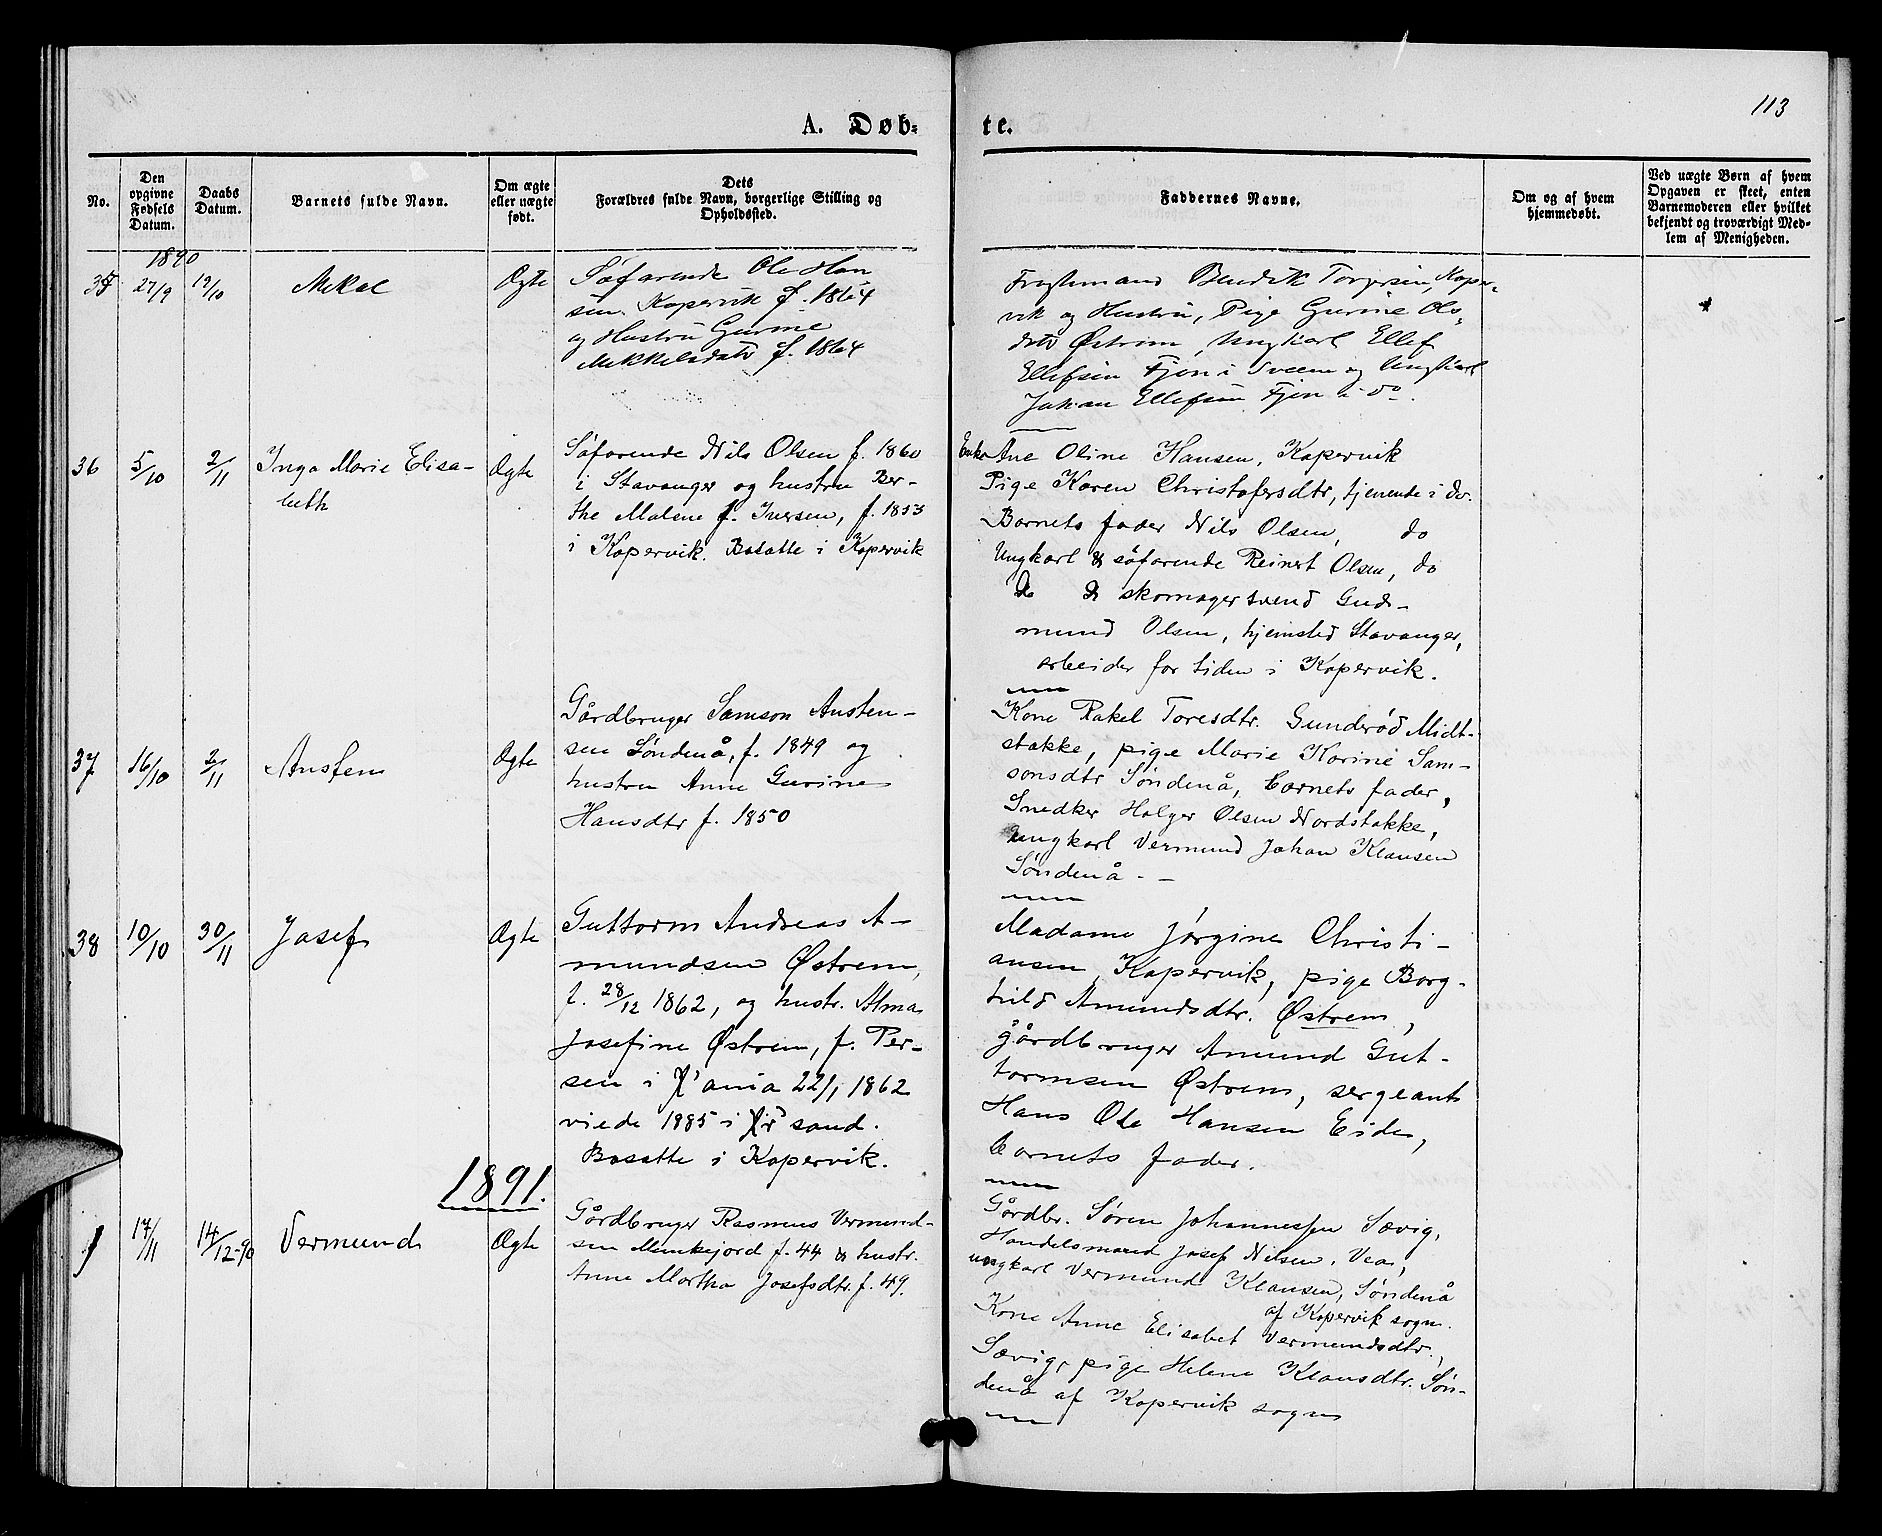 113
A. Døb-
te.
No.
Den opgivne Fødsels Datum.
Daabs Datum.
Barnets fulde Navn.
Om ægte eller uægte født.
Dets Forældres fulde Navn, borgerlige Stilling og Opholdssted.
Faddernes Navne.
Om og af hvem hjemmedøbt.
Ved uægte Børn af hvem Opgaven er skeet, enten Barnemoderen eller hvilket bekjendt og troværdigt Medlem af Menigheden.
1890
35 27/9 19/10 Mikal Ægte
Søfarende Ole Han
sen Kopervik f. 1864
og Hustru Gurine
Mekkelsdatr f. 1864
Fragtemand Bendik Torgersen, Koper-
vik og Hustru, Pige Gurine Ols-
datr Østrem, Ungkarl Ellef
Ellefsen Fjon i Sveen og Ungkarl
Johan Ellefsen Fjon i do.
36 5/10 2/11 Inga Marie Elisa-
beth
Ægte
Søfarende Nils Olsen f. 1860
i Stavanger og hustru Ber-
the Malene f. Iversen, f. 1853
i Kopervik. Bosatte i Kopervik
Enke Ane Oline Hansen, Kopervik
Pige Karen Christofersdtr, tjenende i do.
Barnets fader Nils Olsen, do
Ungkarl & søfarende Reinert Olsen, do
do & skomagersvend Gud-
mund Olsen, hjemsted Stavanger,
arbeider for tiden i Kopervik.
37 16/10 2/11 Austen Ægte
Gårdbruger Samson Austen-
sen Søndenå, f. 1849 og
hustru Anne Gurine
Hansdtr f. 1850
Kone Rakel Toresdtr. Gunderød Midt-
stokke, pige Marie Karine Sam-
sonsdtr Søndenå, barnets fader,
Snedker Holger Olsen Nordstokke,
Ungkarl Vermund Johan Klausen
Søndenå. -
38 10/10 30/11 Josef Ægte
Guttorm Andreas A-
mundsen Østrem,
f. 28/12 1862, og hustr. Alma
Josefine Østrem, f. Per-
sen i X'ania 22/1 1862
viede 1885 i Xr sand.
Bosatte i Kopervik.
Madame Jørgine Christi-
ansen, Kopervik, pige Borg-
hild Amundsdtr. Østrem,
gårdbruger Amund Gut-
tormsen Østrem, sergeant
Hans Ole Hansen Eide,
barnets fader.
1891.
1 17/11 14/12-90 Vermund Ægte
Gårdbruger Rasmus Vermund-
sen Munkejord f. 44 & hustr.
Anne Martha Josefsdtr. f. 49.
Gårdbr. Søren Johannessen Sævig,
Handelsmand Josef Nilsen, Vea,
ungkarl Vermund Klausen, Søndenå
af Kopervik sogn.
Kone Anne Elisabet Vermundsdtr.,
Sævig, pige Helene Klausdtr. Søn-
denå af Kopervik sogn